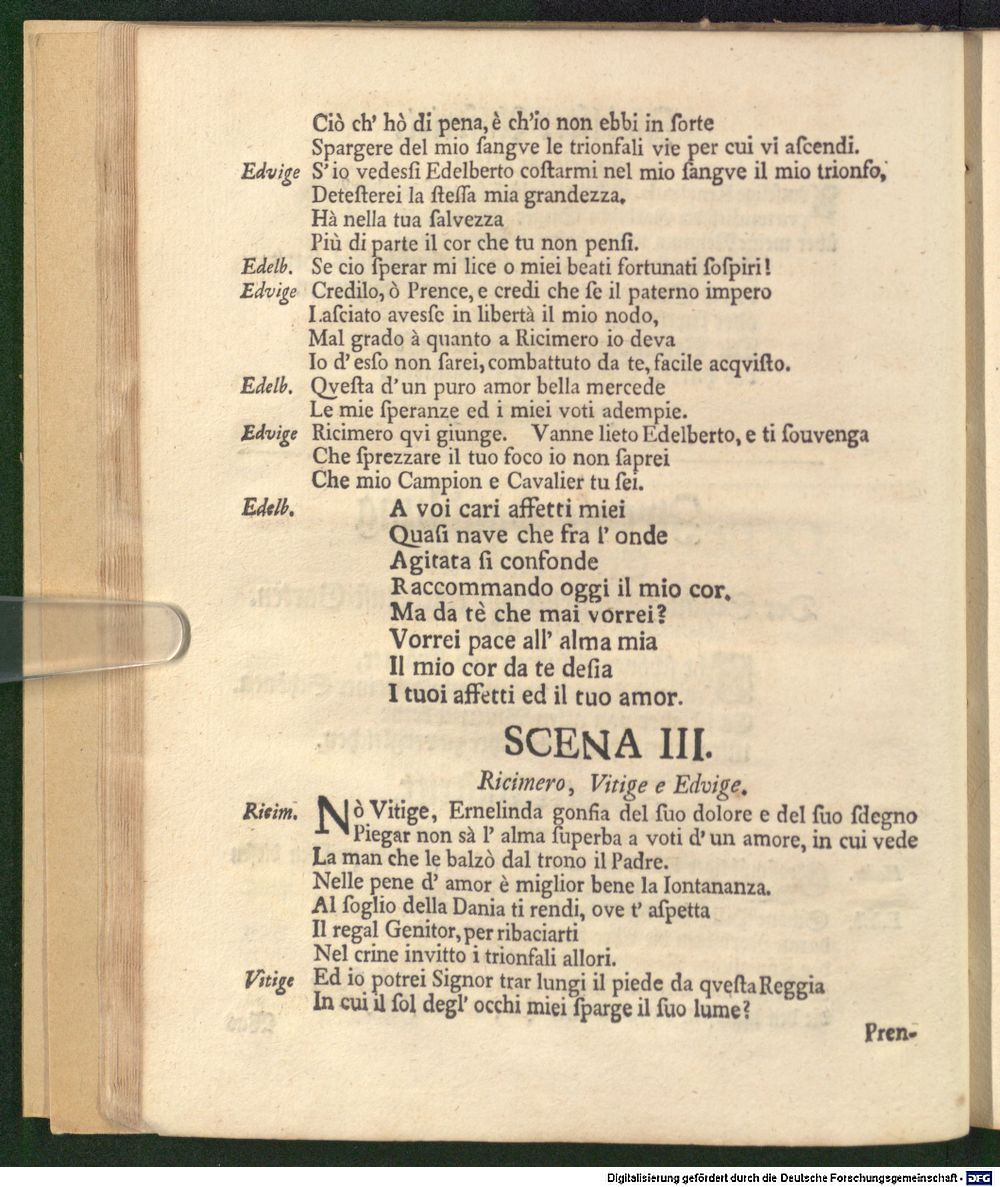 Ciò ch' hò di pena, è ch'io non ebbi in ſorte
Spargere del mio ſangve le trionfali vie per cui vi aſcendi.
Edvige S' io vedesſi Edelberto coſtarmi nel mio ſangve il mio trionfo,
Deteſterei la ſteſſa mia grandezza.
Hà nella tua ſalvezza
Più di parte il cor che tu non penſi.
Edelb. Se cio ſperar mi lice o miei beati fortunati ſoſpiri!
Edvige Credilo, ò Prence, e credi che ſe il paterno impero
Laſciato avesſe in libertà il mio nodo,
Mal grado à quanto a Ricimero io deva
Io d' esſo non ſarei, combattuto da te, facile acqviſto.
Edelb. Qveſta d' un puro amor bella mercede
Le mie ſperanze ed i miei voti adempie.
Edvige Ricimero qvi giunge. Vanne lieto Edelberto, e ti ſouvenga
Che ſprezzare il tuo foco io non ſaprei
Che mio Campion e Cavalier tu ſei.
Edelb. A voi cari affetti miei
Quaſi nave che fra l' onde
Agitata ſi confonde
Raccommando oggi il mio cor.
Ma da tè che mai vorrei?
Vorrei pace all' alma mia
Il mio cor da te deſia
I tuoi affetti ed il tuo amor.
SCENA III.
Ricimero, Vitige e Edvige.
Ricim. Nò Vitige, Ernelinda gonfia del ſuo dolore e del ſuo ſdegno
Piegar non sà l' alma ſuperba a voti d' un amore, in cui vede
La man che le balzò dal trono il Padre.
Nelle pene d' amor è miglior bene la lontananza.
Al ſoglio della Dania ti rendi, ove t' aſpetta
Il regal Genitor, per ribaciarti
Nel crine invitto i trionfali allori.
Vitige Ed io potrei Signor trar lungi il piede da qveſta Reggia
In cui il ſol degl' occhi miei ſparge il ſuo lume?
Pren-
Digitalisierung gefördert durch die Deutsche Forschungsgemeinschaft - DFG